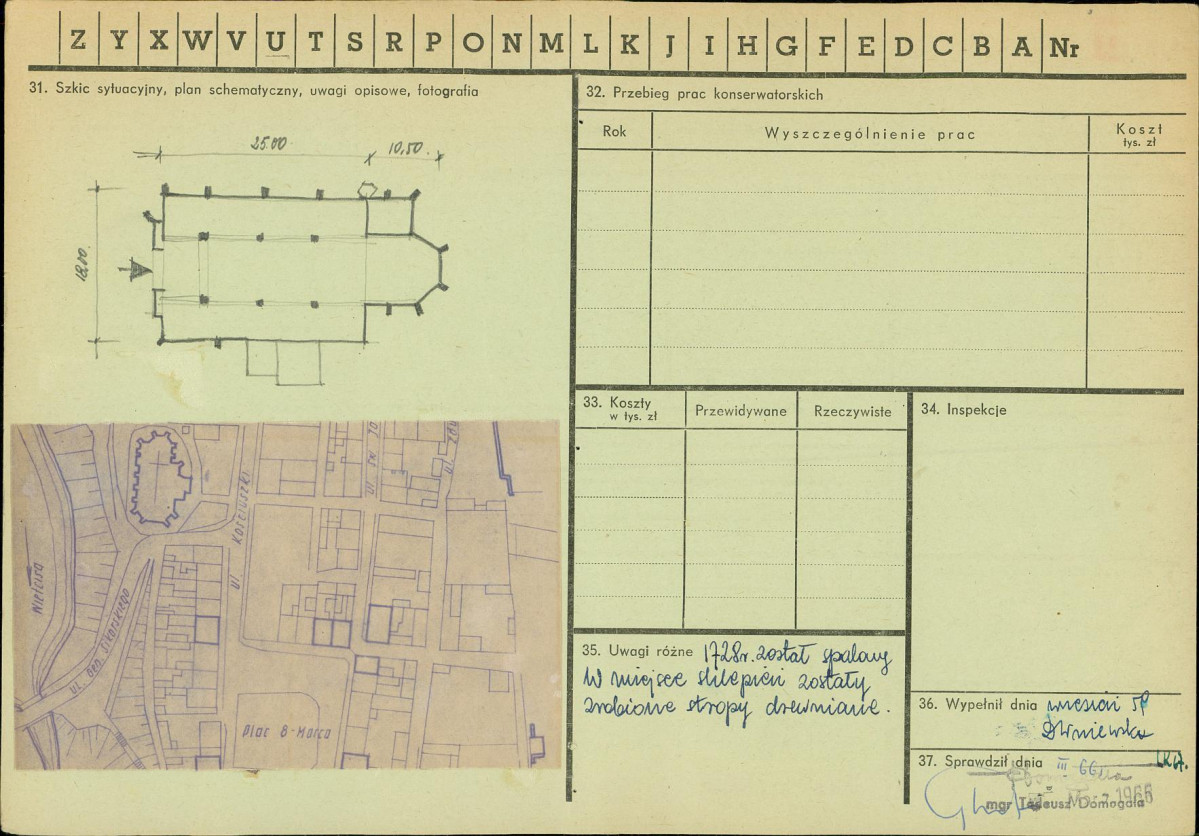 Z Y X W V U T S R P O N M L K J I H G F E D C B A Nr
31. Szkic sytuacyjny, plan schematyczny, uwagi opisowe, fotografia
25.00
10,50
18.00
ul. Kościuszki
ul. Gen. Sikorskiego
Plac 8-Marca
32. Przebieg prac konserwatorskich
Rok
Wyszczególnienie prac
Koszt
tys. zł
33. Koszty
w tys. zł
Przewidywane
Rzeczywiste
34. Inspekcje
35. Uwagi różne 1728r. został spalony
W miejsce sklepień zostały
zrobione stropy drewniane.
36. Wypełnił dnia
37. Sprawdził dnia III 66
mgr Tadeusz Domogała